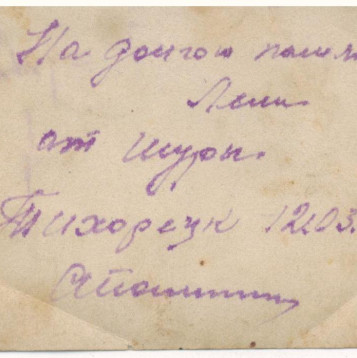 На долгою памя
Лени
от Шуры.
Тихорецк 12.03.